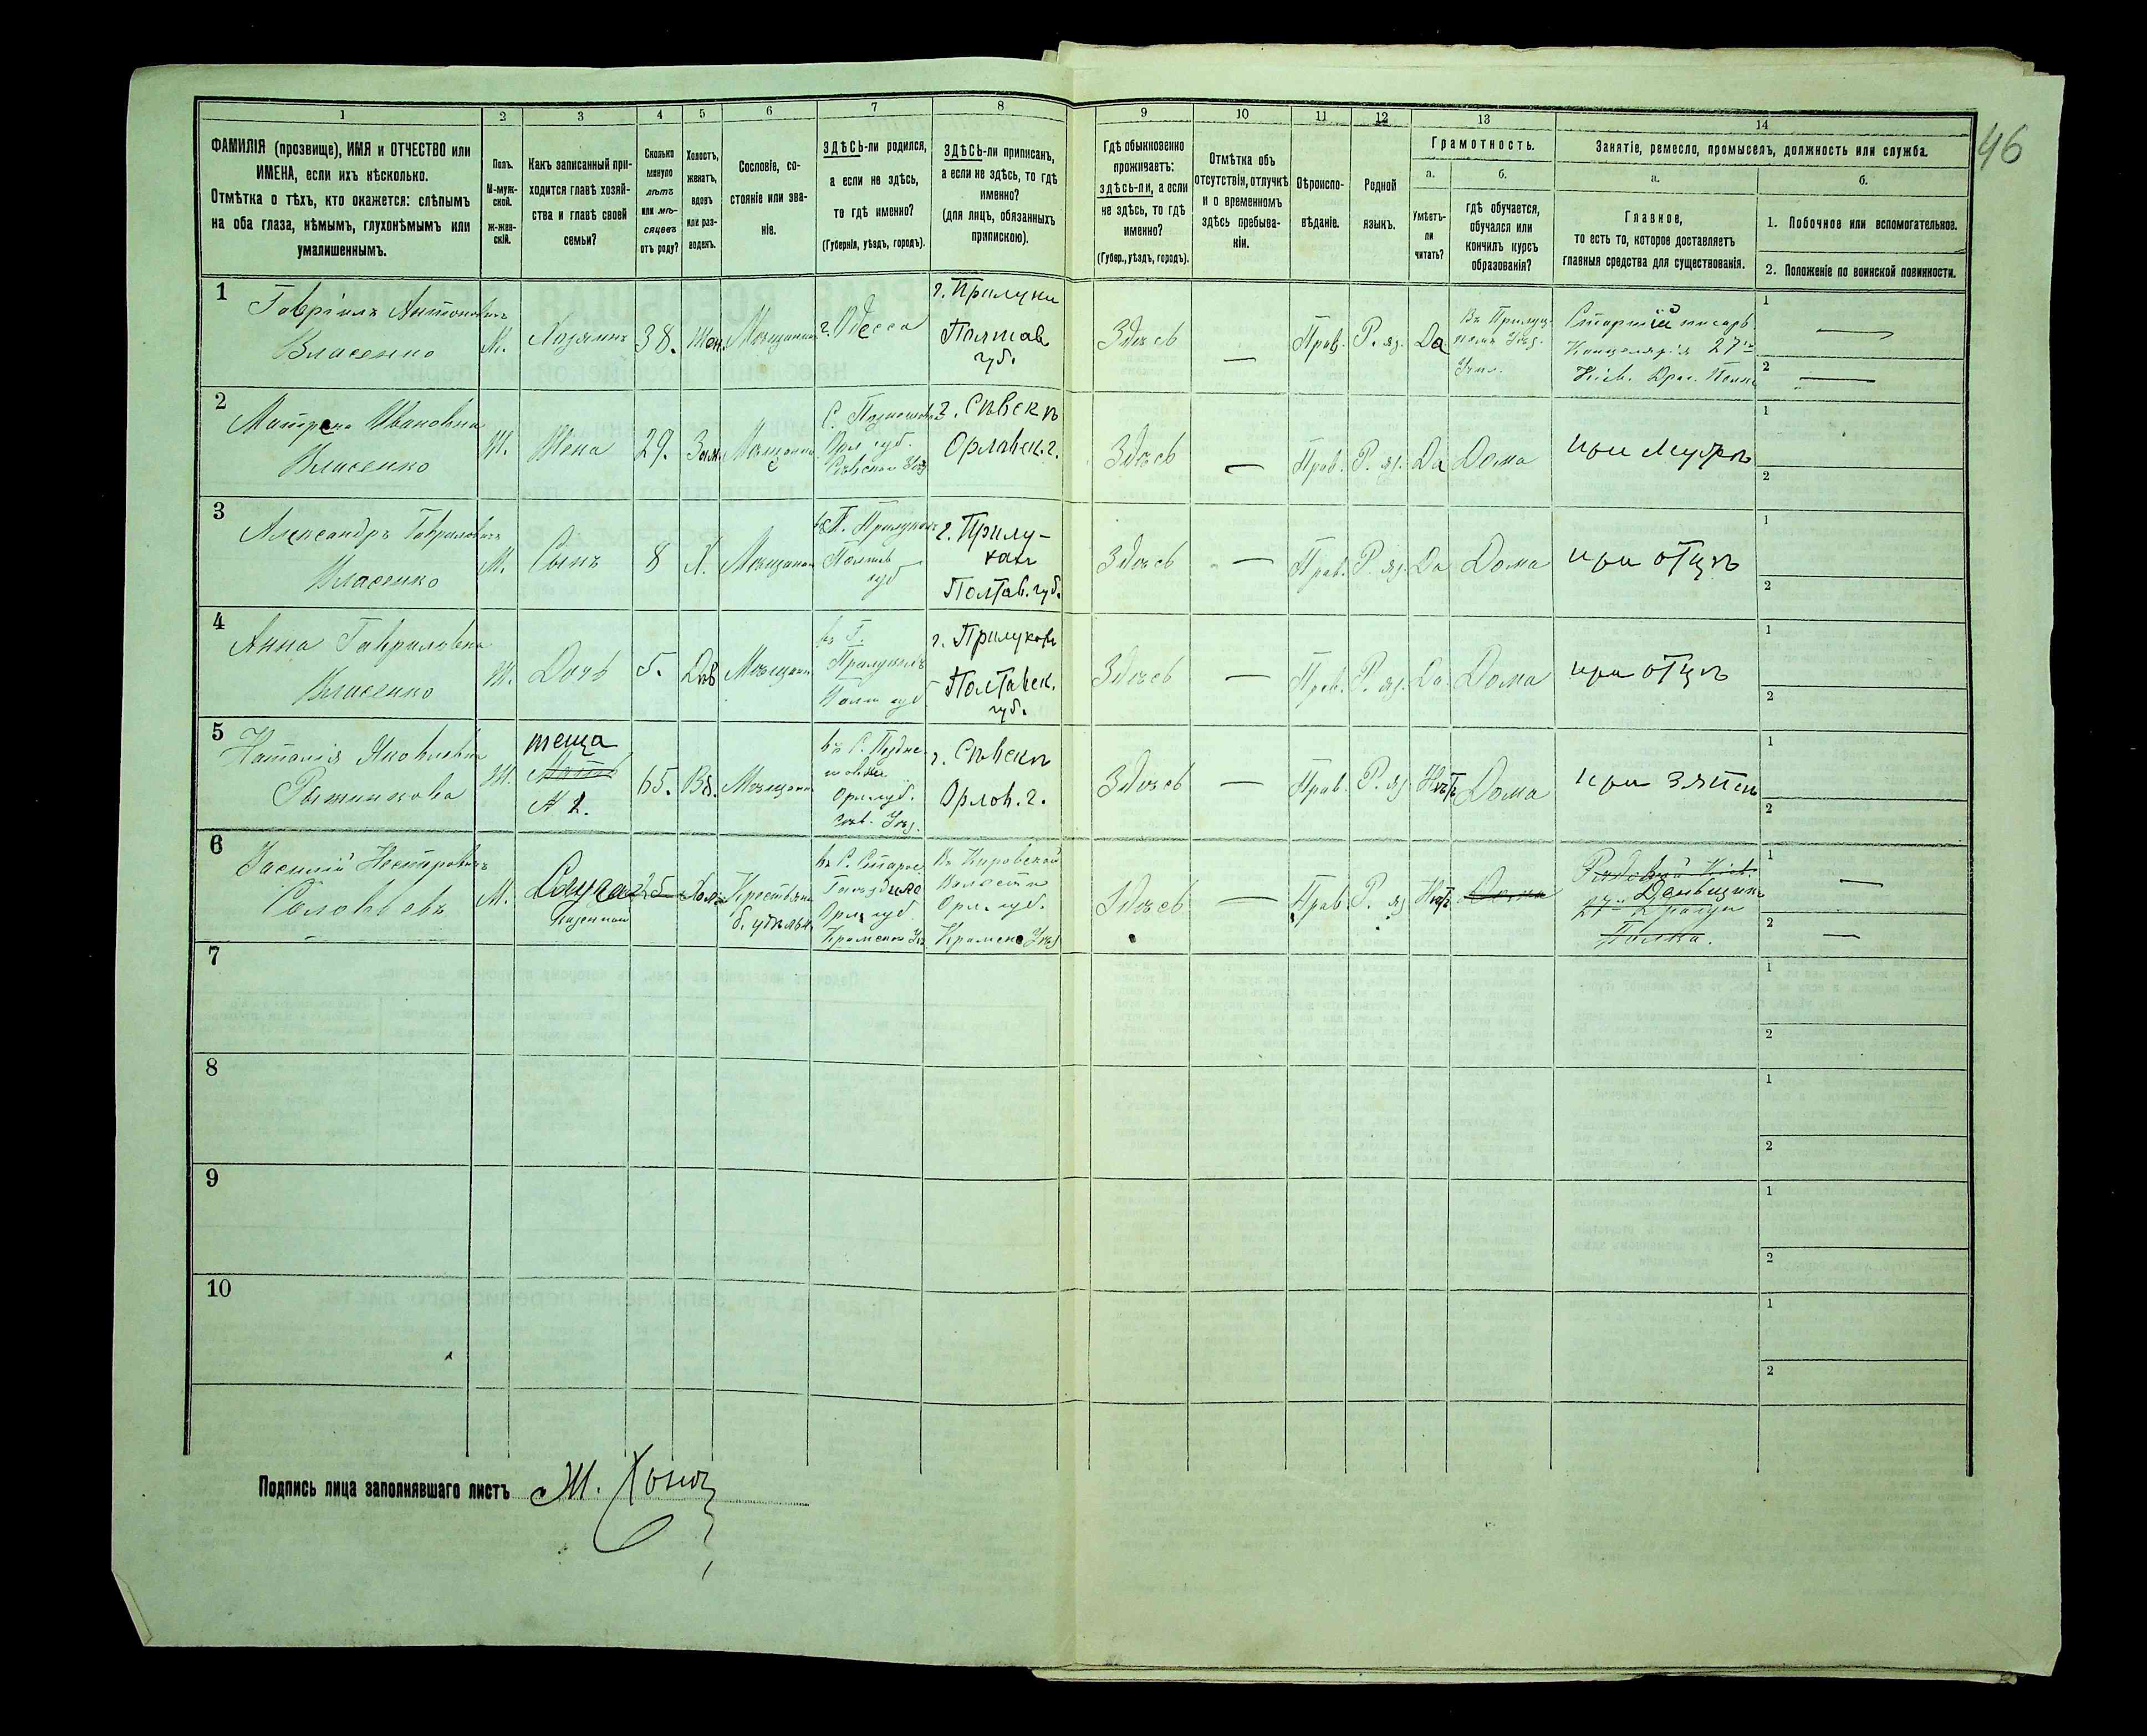 46
1 2 3 4 5 6 7 8 9 10 11 12 13 14
ФАМИЛІЯ (прозвище), ИМЯ и ОТЧЕСТВО или
ИМЕНА, если ихъ нѣсколько.
Отмѣтка о тѣхъ, кто окажется: слѣпымъ
на оба глаза, нѣмымъ, глухонѣмымъ или
умалишеннымъ.
Полъ.
М-муж-
ской.
ж-жен-
скій.
Какъ записанный при-
ходится главѣ хозяй-
ства и главѣ своей
семьи?
Сколько
минуло
лѣтъ
или мѣ-
сяцевъ
отъ роду?
Холостъ,
женатъ,
вдовъ
или раз-
веденъ.
Сословіе, со-
стояніе или зва-
ніе.
ЗДѢСЬ-ли родился,
а если не здѣсь,
то гдѣ именно?
(Губернія, уѣздъ, городъ).
ЗДѢСЬ-ли приписанъ,
а если не здѣсь, то гдѣ
именно?
(для лицъ, обязанныхъ
припискою).
Гдѣ обыкновенно
проживаетъ:
здѣсь-ли, а если
не здѣсь, то гдѣ
именно?
(Губер., уѣздъ, городъ).
Отмѣтка объ
отсутствіи, отлучкѣ
и о временномъ
здѣсь пребыва-
ніи.
Вѣроиспо-
вѣданіе.
Родной
языкъ.
Грамотность.
а.
Умѣетъ-
ли
читать?
б.
гдѣ обучается,
обучался или
кончилъ курсъ
образованія?
Занятіе, ремесло, промыселъ, должность или служба.
а.
Главное,
то есть то, которое доставляетъ
главныя средства для существованія.
б.
1. Побочное или вспомогательное.
2. Положеніе по воинской повинности.
1
Гавріилъ Антоновичъ
Власенко
М.
Хозяинъ
38.
Жен.
Мѣщанинъ
г. Одесса
г. Прилуки
Полтав
губ.
Здѣсь
—
Прав.
Р. яз.
Да
Въ Прилуц-
комъ Уѣз.
Учил.
Старшій писарь
Канцеляріи 27го
Кіев. Драг. Полка
1 —
2 —
2
Матрена Ивановна
Власенко
Ж.
Жена
29.
Зам.
Мѣщанка
Орл губ.
Сѣвскаго Уѣз
г. Сѣвскъ
Орловск. г.
Здѣсь
—
Прав.
Р. яз.
Да
Дома
при Мужѣ
1
2
3
Александръ Гавриловичъ
Власенко
М.
Сынъ
8
Х.
Мѣщанинъ
въ Г. Прилукахъ
Полтав
губ
г. Прилу-
кахъ
Полтав. губ.
Здѣсь
—
Прав.
Р. яз.
Да
Дома
при отцѣ
1
2
4
Анна Гавриловна
Власенко
Ж.
Дочь
5.
Дѣв
Мѣщанка
въ Г.
Прилукахъ
Полт губ
г. Прилуковъ
Полтавск.
губ.
Здѣсь
—
Прав.
Р. яз.
Да
Дома
при отцѣ
1
2
5
Наталія Яковлевна
Ж.
теща
Мать
№ 2.
65.
Вд.
Мѣщанка
Орл. губ.
Сѣв. Уѣз.
г. Сѣвскъ
Орлов. г.
Здѣсь
—
Прав.
Р. яз
Нѣтъ
Дома
при зятѣ
1
2
6
Василій Нестеровичъ
Соловьевъ
М.
Слуга
казенный
25
Холос
Крестьян
б. удѣльн.
Орл. губ.
Кромской Уѣз
Волости
Орл. губ.
Кромск. Уѣз
Здѣсь
—
Прав.
Р. яз
Нѣтъ
Дома
Рядовой Кіев.
Деньщикъ
27го Драгун
Полка.
1 —
2 —
7
1
2
8
1
2
9
1
2
10
1
2
Подпись лица заполнявшаго листъ